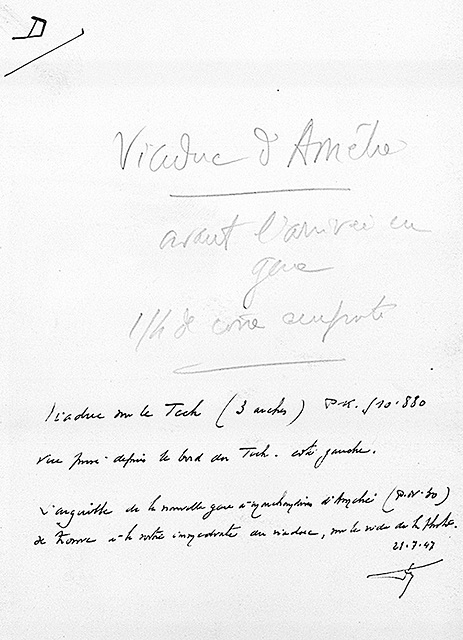 D
Viaduc d'Amélie
avant l'arrivée en
gare
1/4 de cône emporté
Viaduc sur le Tech (3 arches) P.K. 510.880
vue prise depuis le bord du Tech. côté gauche.
L'aiguille de la nouvelle gare à marchandises d'Amélie (P.N. 30)
se trouve à la sortie immédiate du viaduc, sur le vide de la photo.
21.7.47